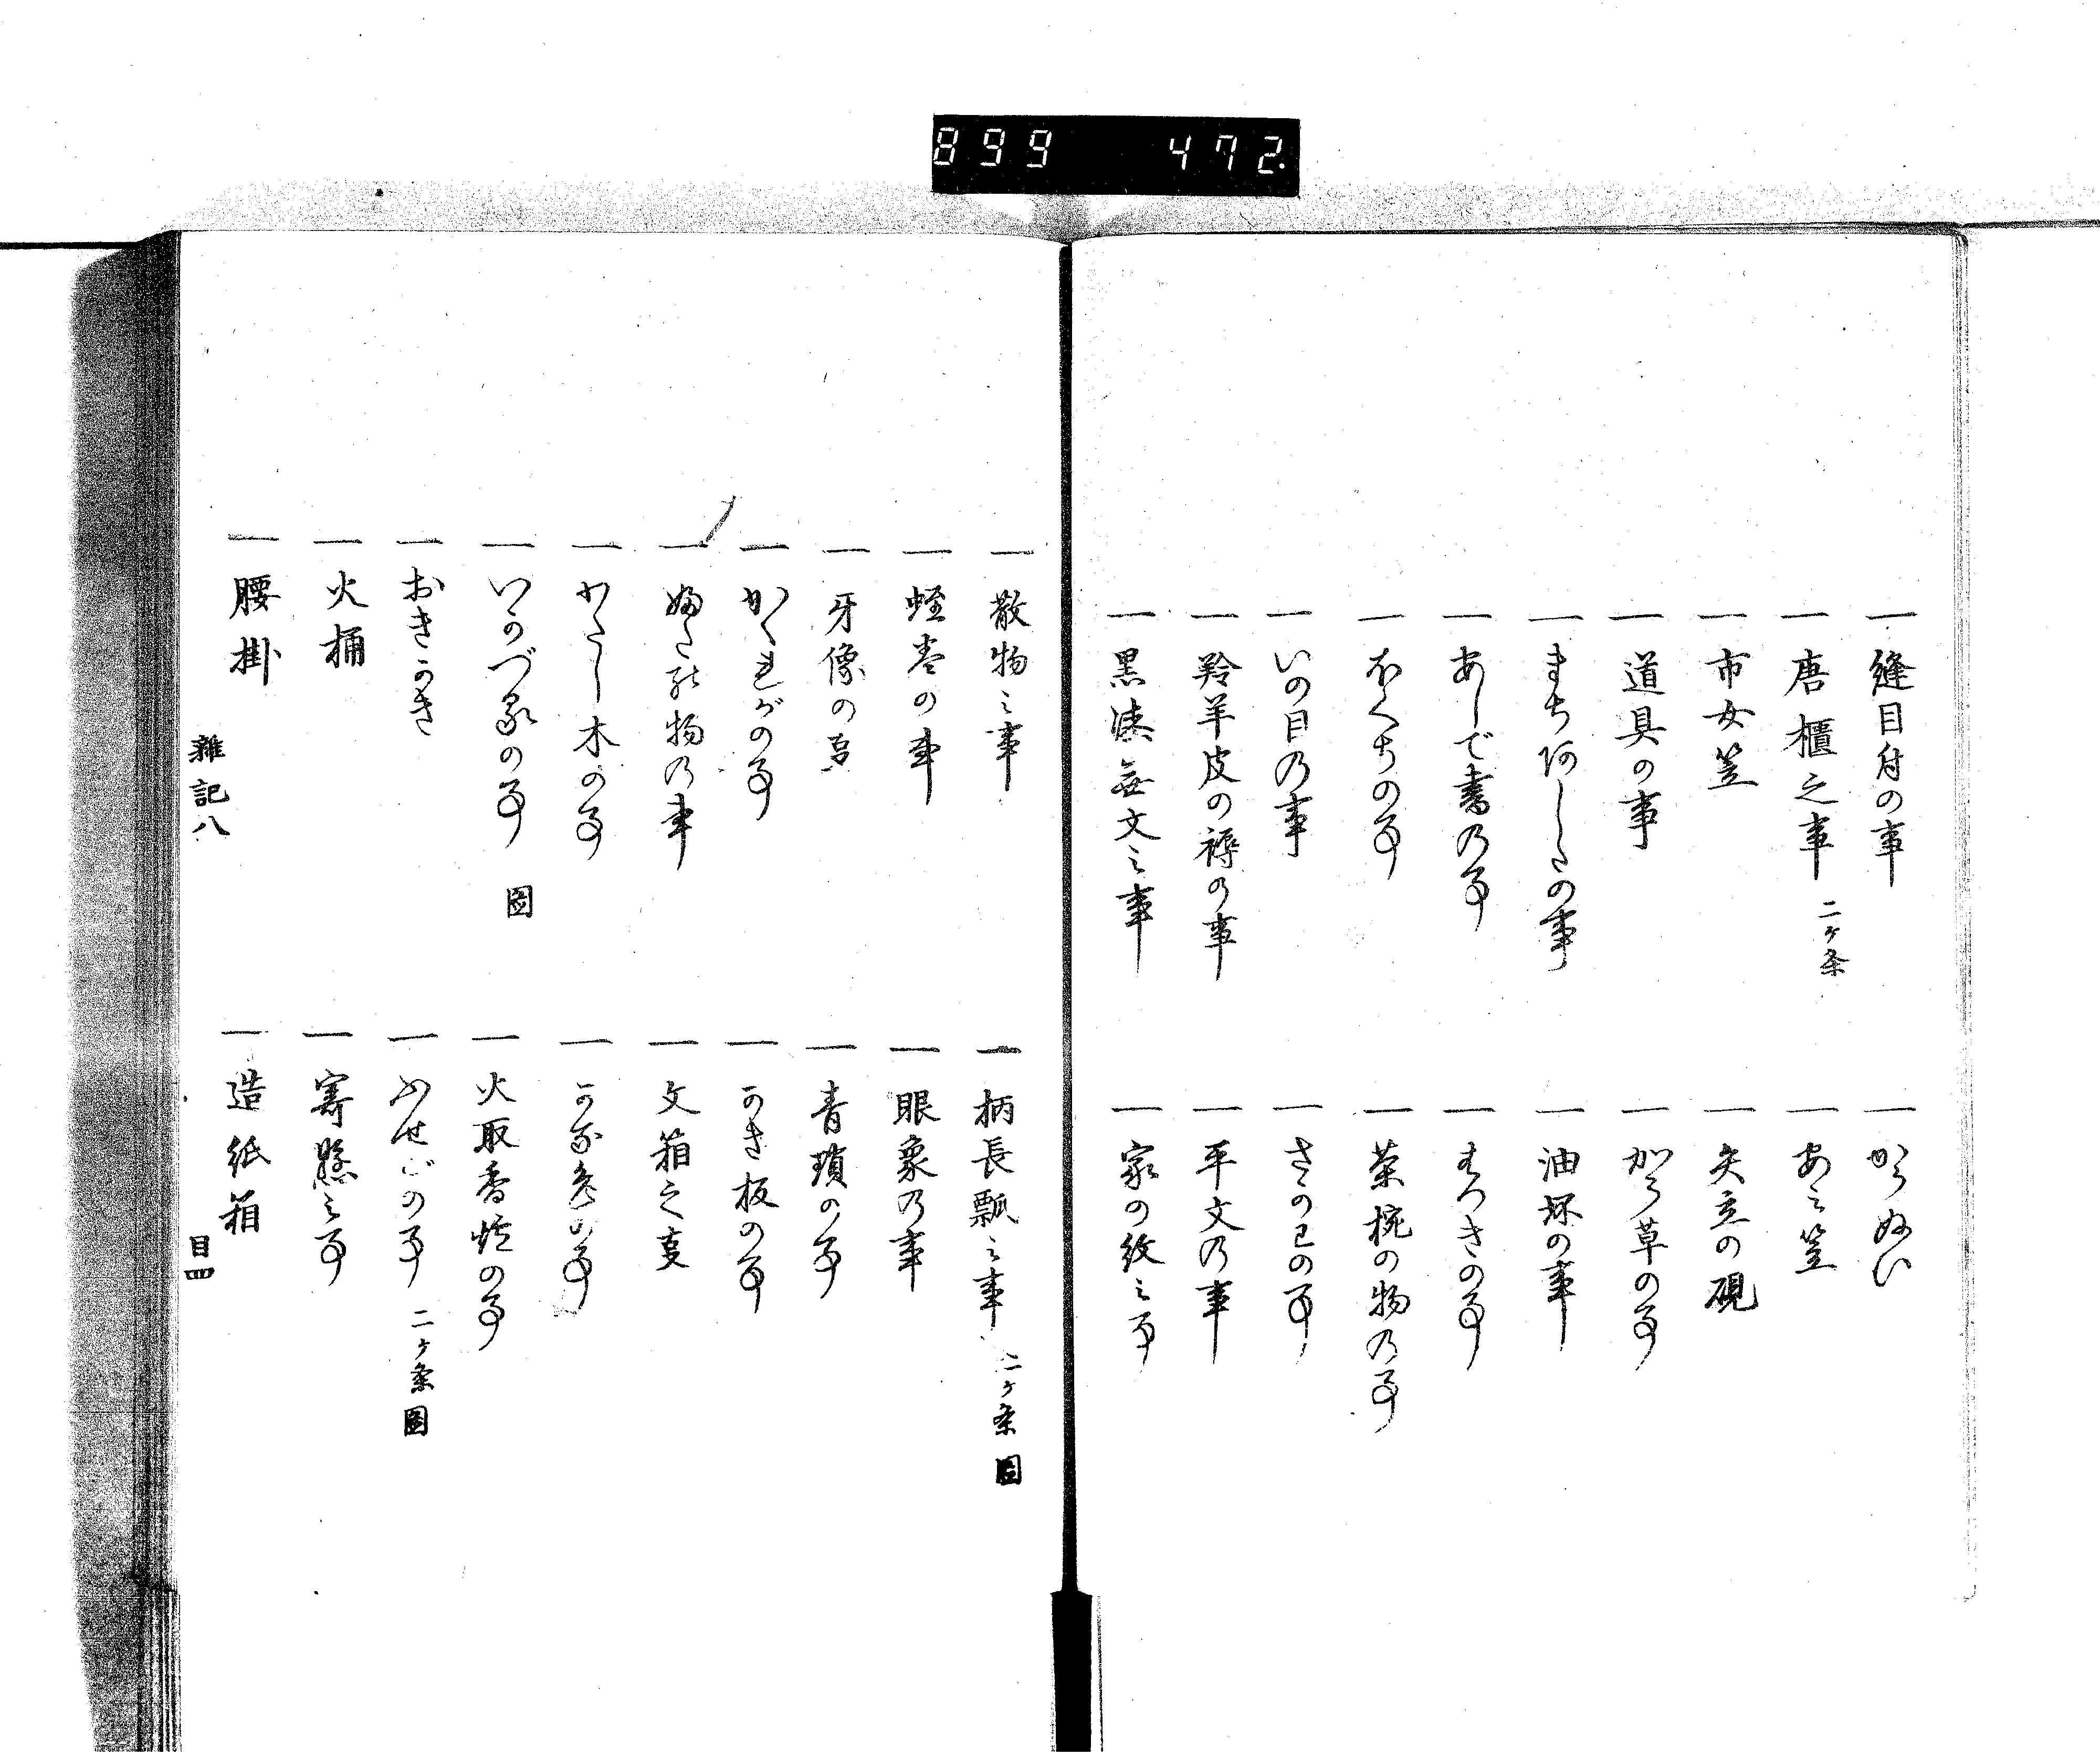 899 472
一縫目付の事
一からぬい
一唐櫃之事 二ケ条
一あミ笠
一市女笠
一矢立の硯
一道具の事
一から草の事
一まち阿したの事
一油坏の事
一あしで書乃事
一の事
一くちの事
一茶椀の物乃事
一いの目乃事
一の事
一羚羊皮の褥の事
一平文乃事
一黒漆無文之事
一家の紋之事
一散物之事
一柄長瓢之事 二ケ条圖
一蛭巻の事
一眼象乃事
一牙像の事
一青瑣の事
一かくれがの事
一かき板の事
一物乃事
一文箱之事
一わたし木の事
一の事
一の事 圖
一火取香炉の事
一おきかき
一ふせごの事 二ケ条圖
一火桶
一寄懸之事
一腰掛
一造紙箱
雜記八 目四